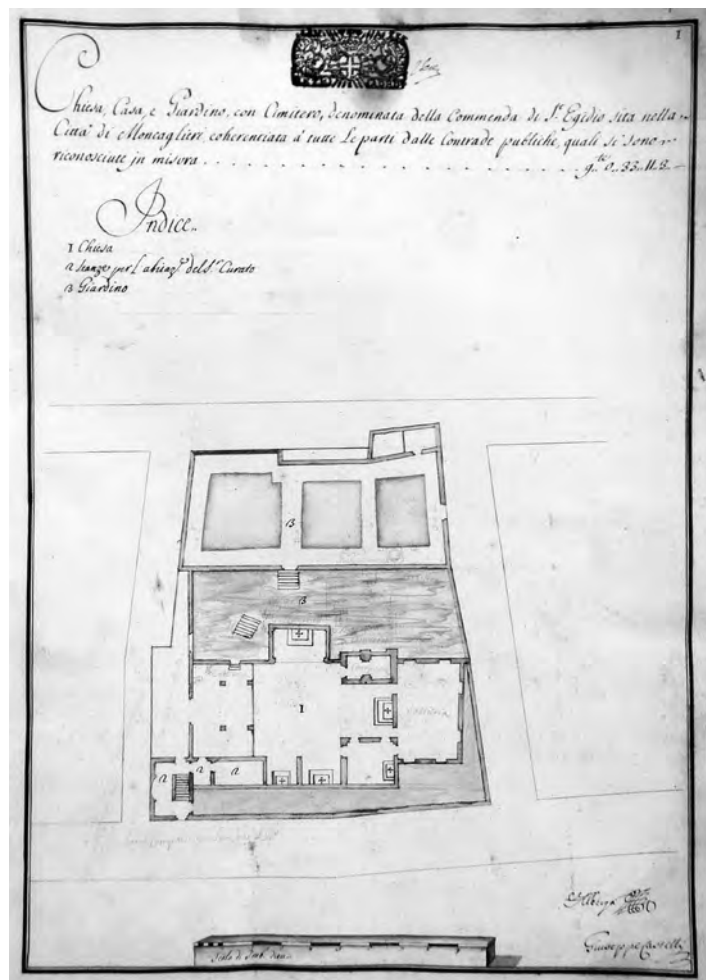 1
Chiesa, Casa, e Giardino, con Cimitero, denominata della Commenda di S.t Egidio sita nella
Città di Moncaglieri, coherentiata à tutte Le parti dalle Contrade publiche, quali si sono
riconosciute in misora . . . . . . . . . . . g.te 0..33..11..3..
Indice..
1 Chiesa
2 Stanze per l'abitaz.e del S.r Curato
3 Giardino
3
3
1
2
2
2
Scala di
Giuseppe Castelli